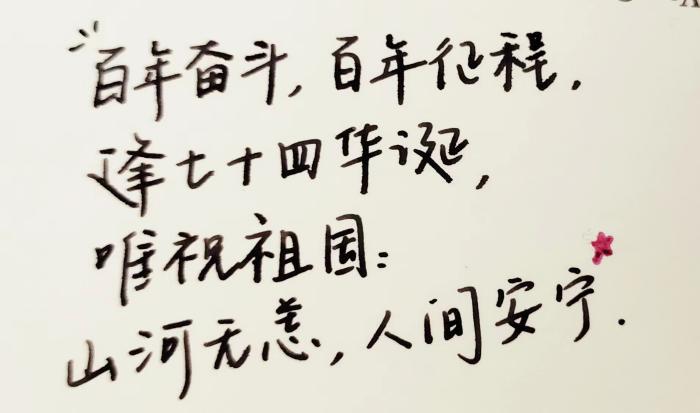 百年奋斗,百年征程.
逢七十四华诞,
唯祝祖国:
山河无恙,人间安宁.